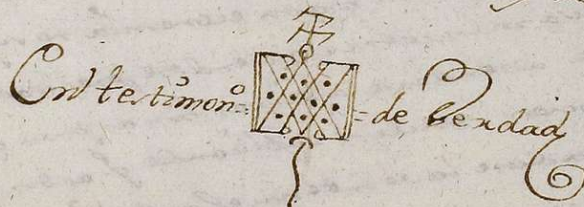 En testimonº = = de Verdad